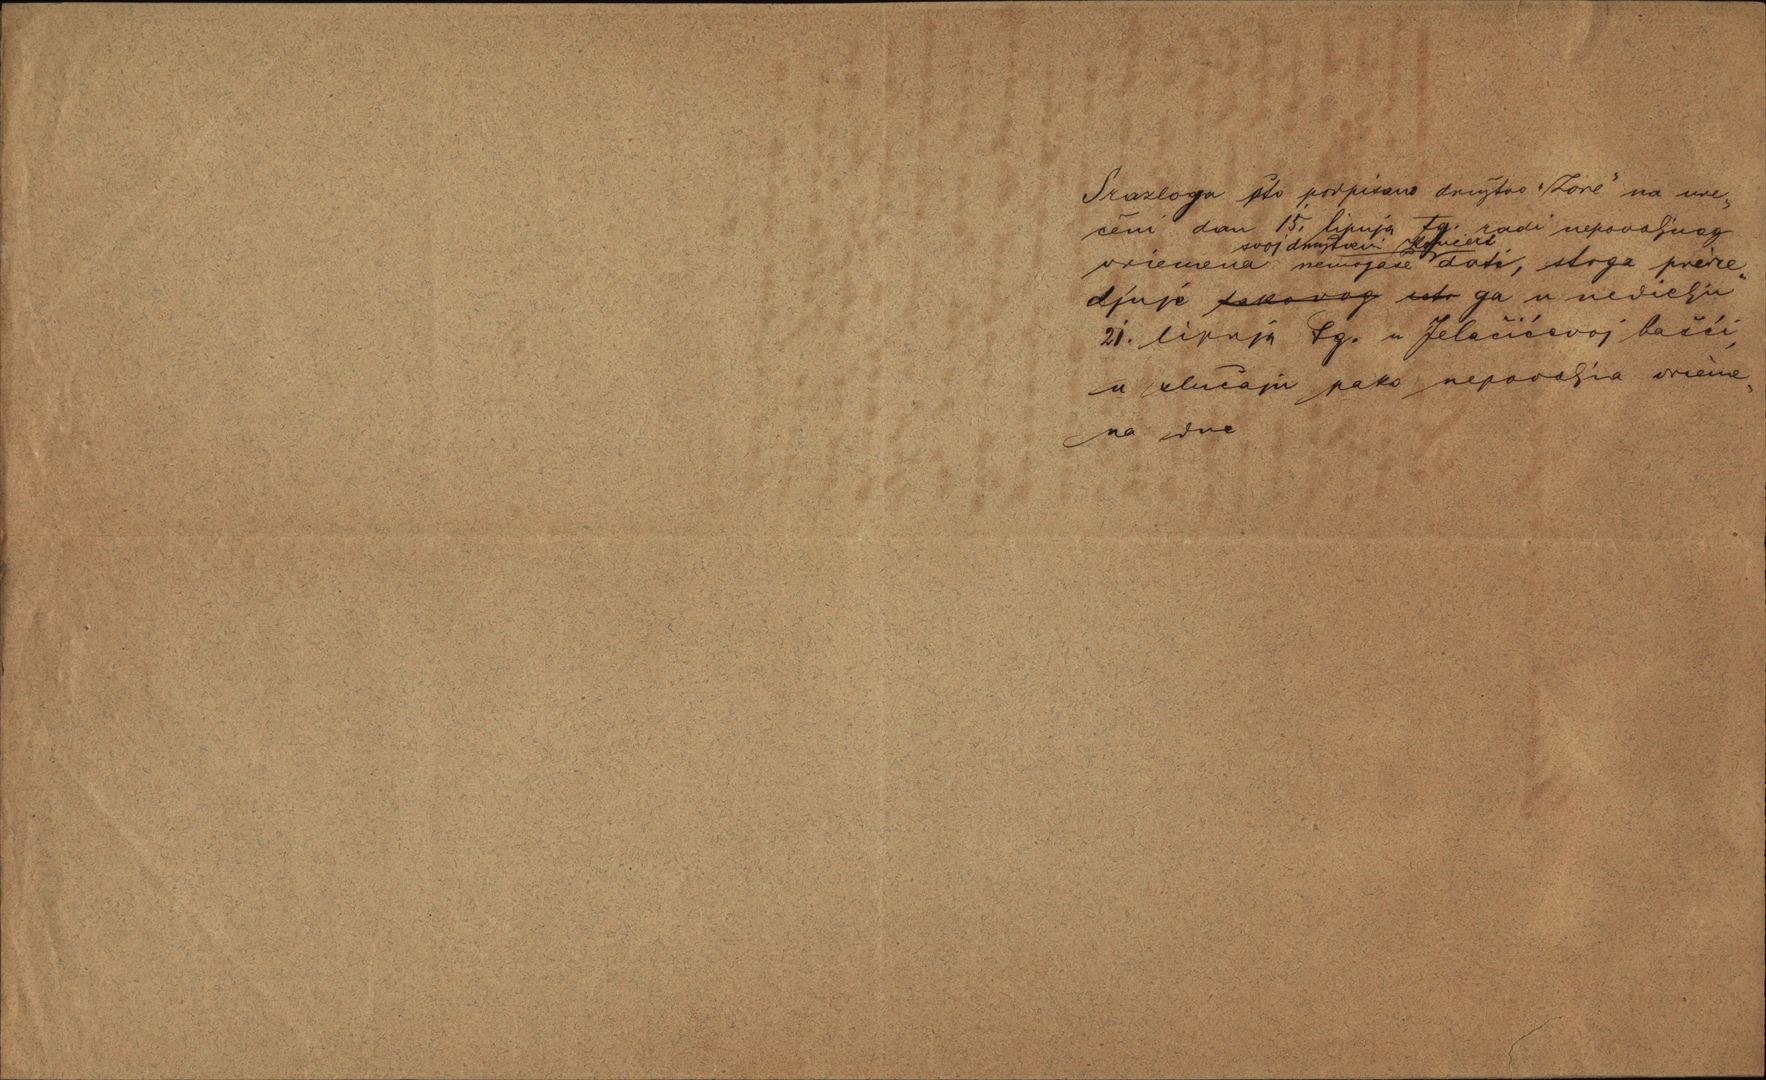 S razloga što podpisano družtvo "Zore" na ure„
čeni dan 15. lipnja tg. radi nepovoljnog
svoj družtveni koncert
vriemena nemogaše dati, stoga prire„
djuje takovog isto ga u nedielju
21. lipnja tg. u Jelačićevoj bašći,
u slučaju pako nepovoljna vrieme„
na dne